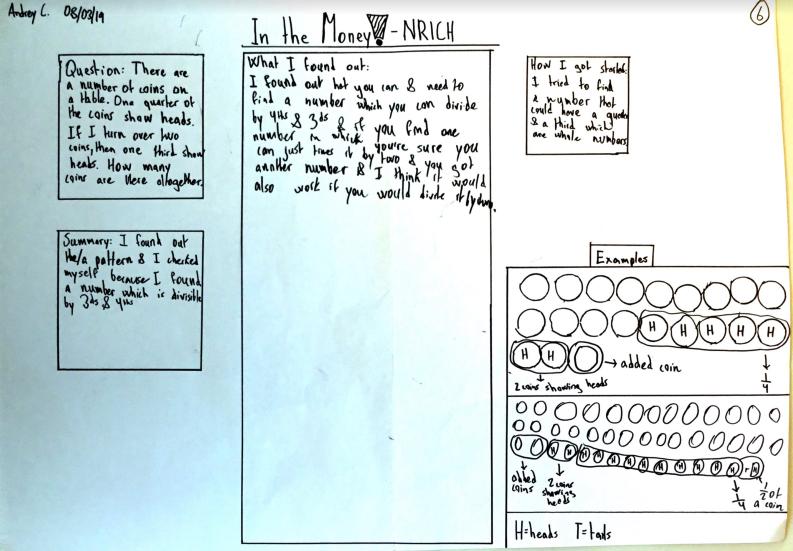 Andrey C. 08/03/19
6
In the Money! - NRICH
Question: There are
a number of coins on
a table. One quarter of
the coins show heads.
If I turn over two
coins, then one third show
heads. How many
coins are there altogether.
What I found out:
I found out hot you can & need to
find a number which you can divide
by 4ths & 3ds & if you find one
number in which you're sure you
can just times it by two & you got
another number & I think it would
also work if you would divide it by
How I got started:
I tried to find
a number that
could have a quater
& a third which
are whole numbers.
Summary: I found out
the/a pattern & I checked
myself because I found
a number which is divisible
by 3ds & 4ths
Examples
H H H H H
H H
→ added coin
2 coins showing heads
1/4
H H H H H H H H H H H H + H
added
coins
2 coins
showing
heads
1/4
1/2 of
a coin
H=heads T=tails